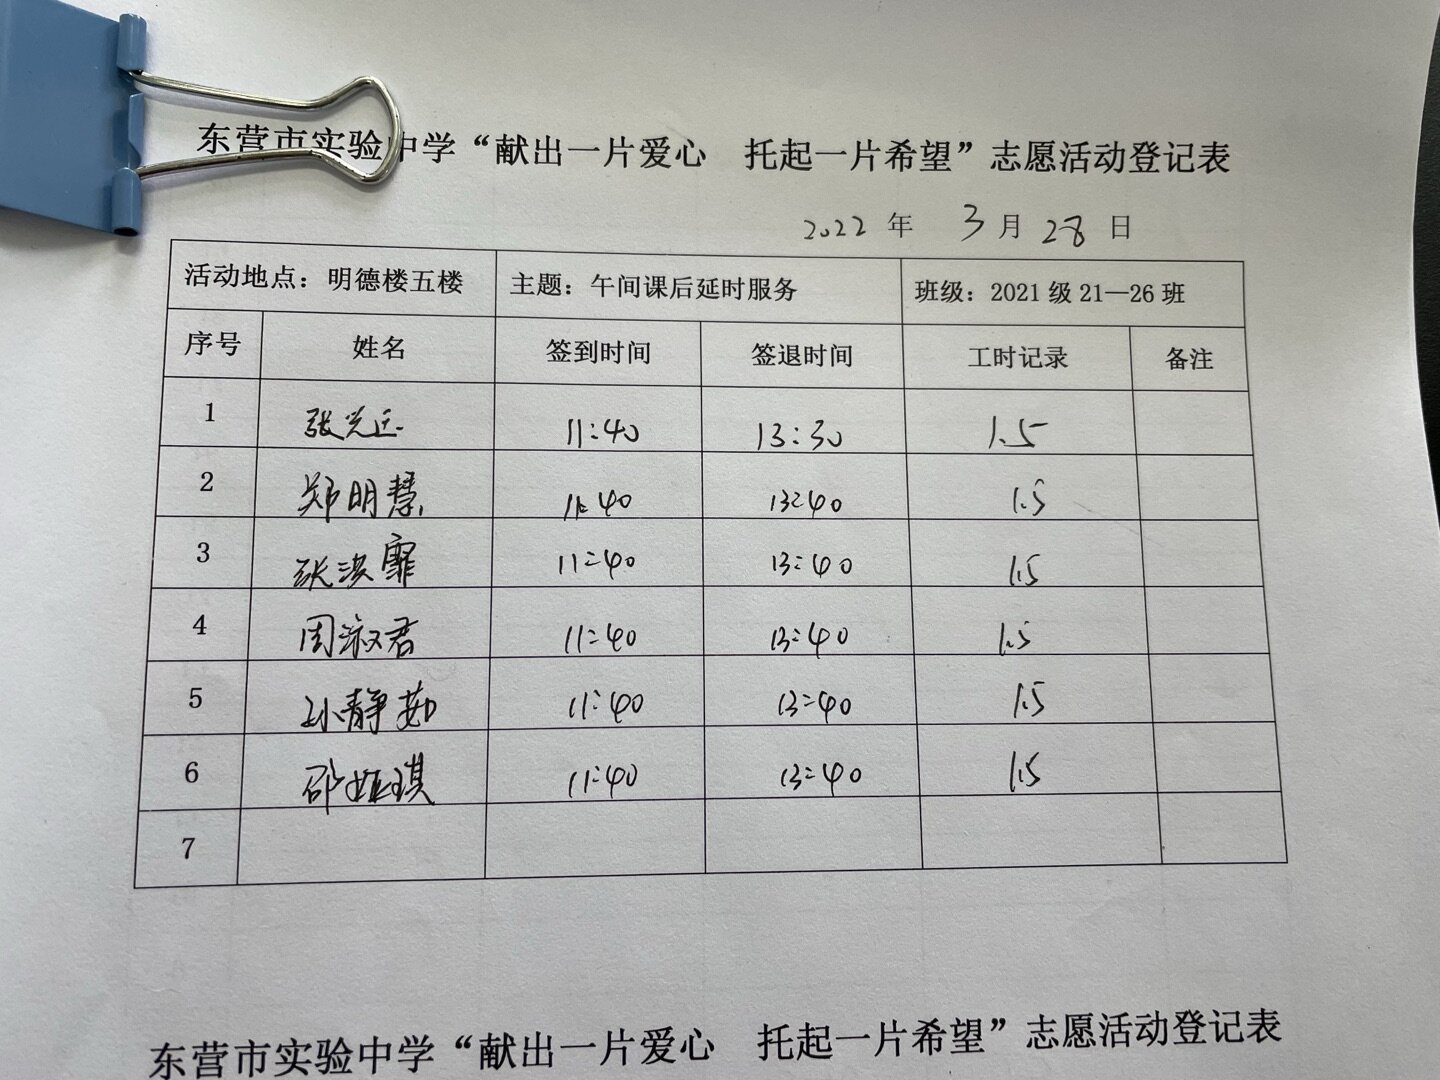 东营市实验中学“献出一片爱心 托起一片希望”志愿活动登记表
2022 年 3 月 28 日
活动地点：明德楼五楼 主题：午间课后延时服务 班级：2021 级 21—26 班
序号 姓名 签到时间 签退时间 工时记录 备注
1 张光 11:40 13:30 1.5
2 郑明慧 11:40 13:40 1.5
3 张洪霏 11:40 13:40 1.5
4 周淑君 11:40 13:40 1.5
5 孙静茹 11:40 13:40 1.5
6 邵娅琪 11:40 13:40 1.5
7
东营市实验中学“献出一片爱心 托起一片希望”志愿活动登记表